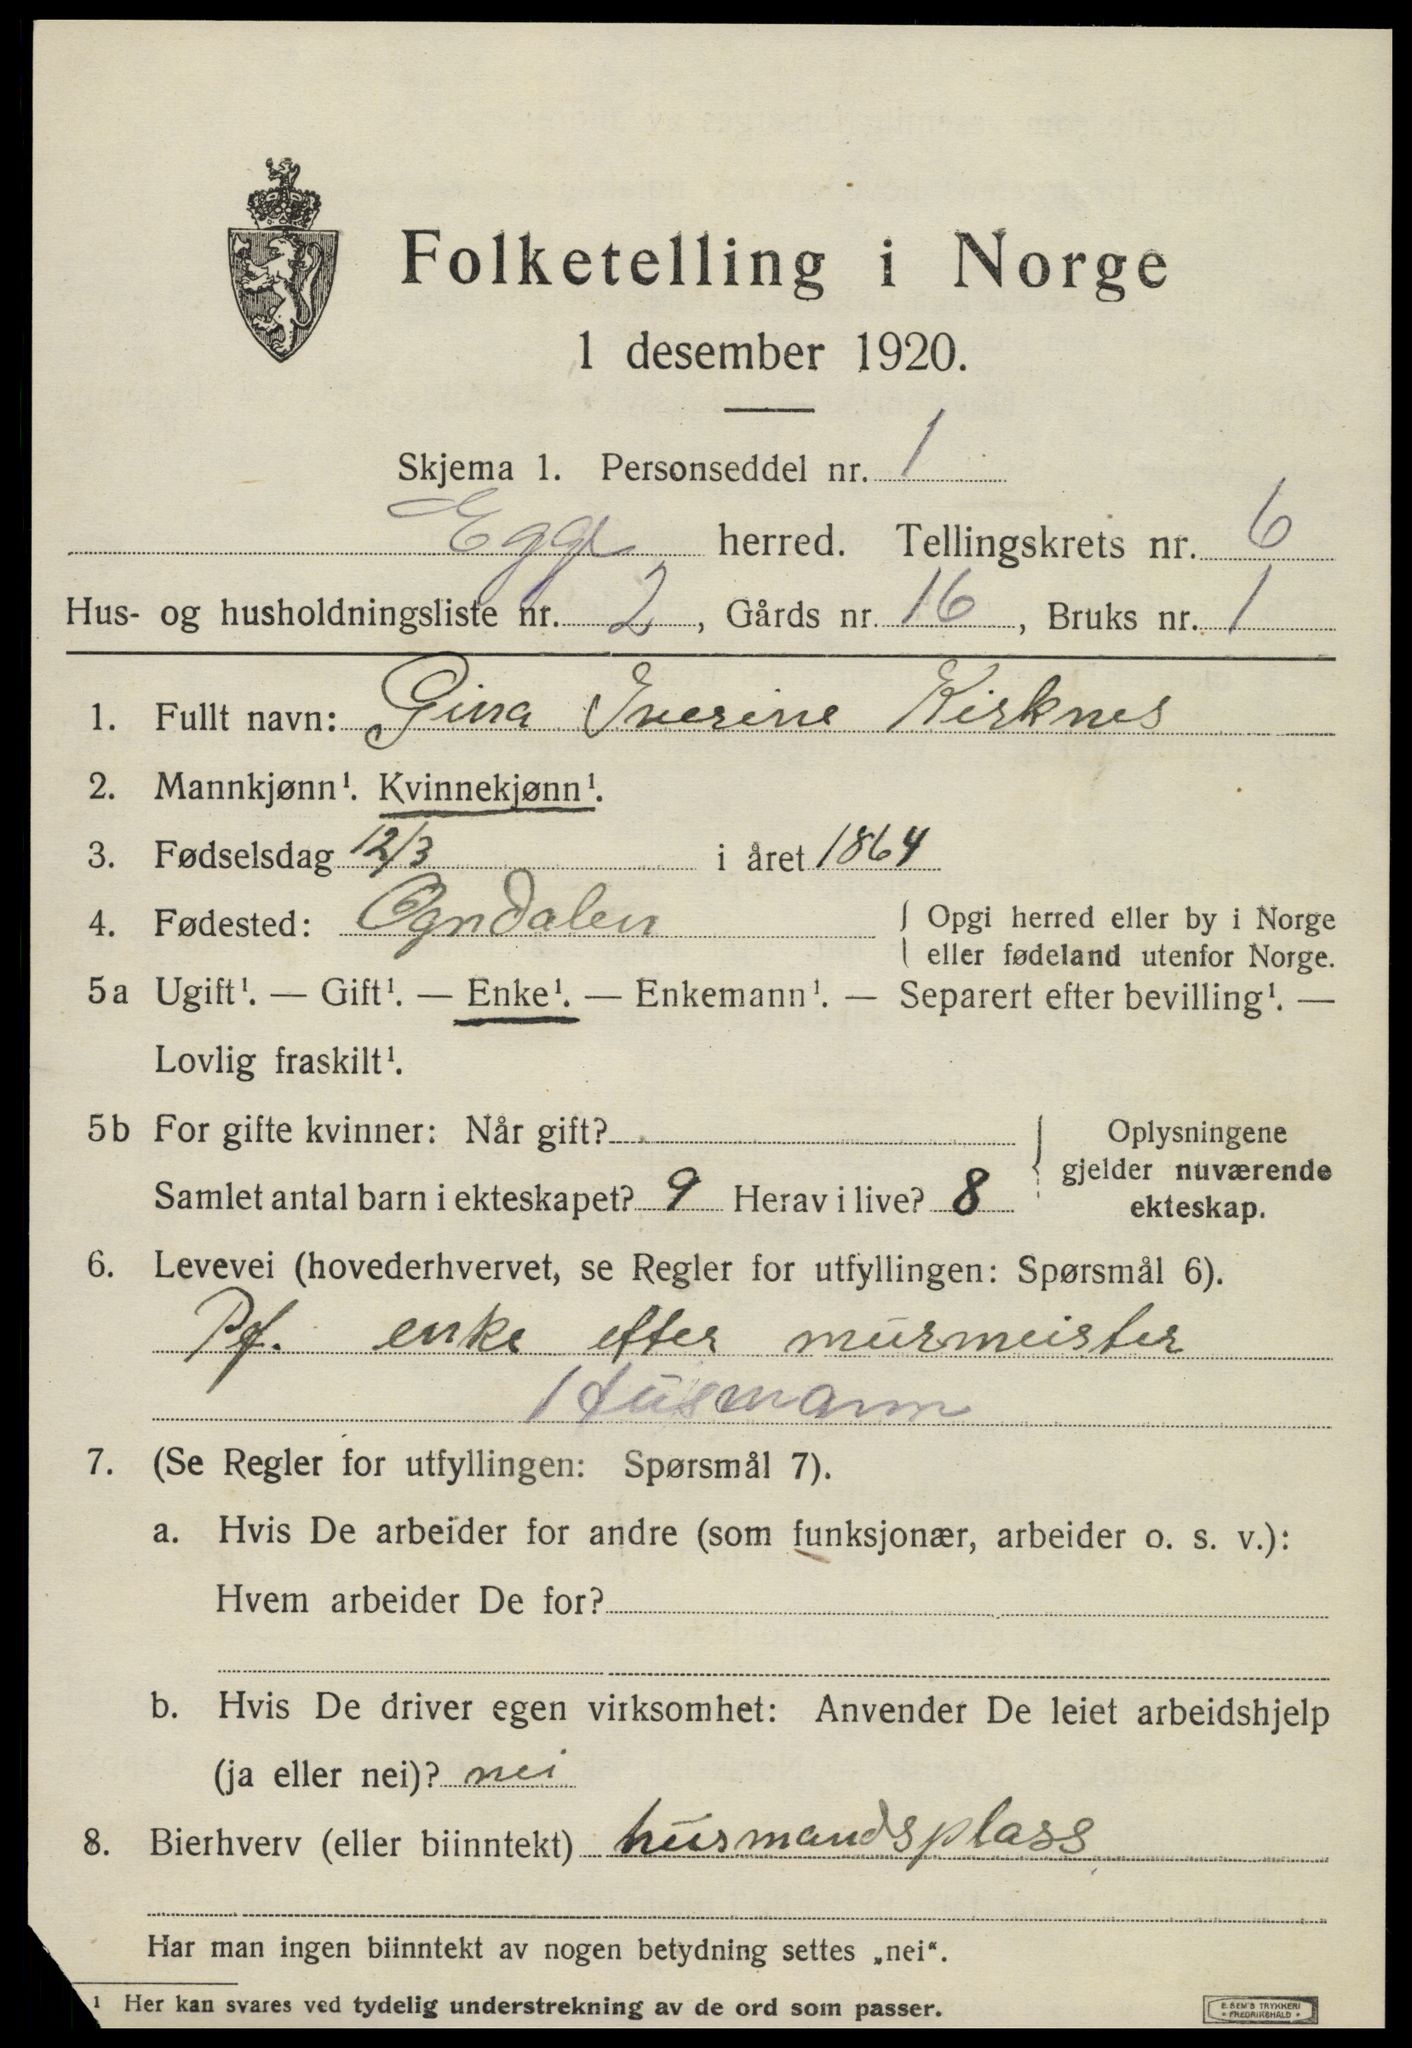 Folketelling i Norge
1 desember 1920.
Skjema 1. Personseddel nr. 1
Egge herred. Tellingskrets nr. 6
Hus- og husholdningsliste nr. 2, Gårds nr. 16, Bruks nr. 1
1. Fullt navn: Gina Iverine Kirknes
2. Mannkjønn¹. Kvinnekjønn¹.
3. Fødselsdag 12/3 i året 1864
4. Fødested: Ogndalen { Opgi herred eller by i Norge
eller fødeland utenfor Norge.
5a Ugift¹. — Gift¹. — Enke¹. — Enkemann¹. — Separert efter bevilling¹. —
Lovlig fraskilt¹.
5b For gifte kvinner: Når gift? } Oplysningene
gjelder nuværende
Samlet antal barn i ekteskapet? 9 Herav i live? 8 ekteskap.
6. Levevei (hovederhvervet, se Regler for utfyllingen: Spørsmål 6).
Pf. enke efter murmeister
Husmann
7. (Se Regler for utfyllingen: Spørsmål 7).
a. Hvis De arbeider for andre (som funksjonær, arbeider o. s. v.):
Hvem arbeider De for?
b. Hvis De driver egen virksomhet: Anvender De leiet arbeidshjelp
(ja eller nei)? nei
8. Bierhverv (eller biinntekt) husmandsplass
Har man ingen biinntekt av nogen betydning settes „nei“.
¹ Her kan svares ved tydelig understrekning av de ord som passer.
E. SEM'S TRYKKERI
• FREDRIKSHALD •